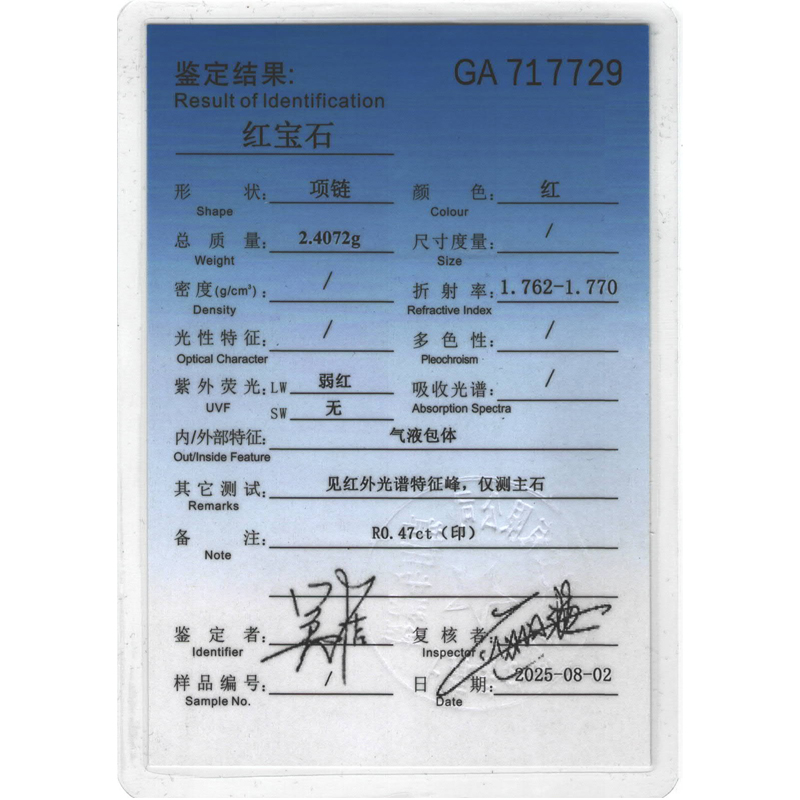 鉴定结果: GA 717729
Result of Identification
红宝石
形状: 项链 颜色: 红
Shape Colour
总质量: 2.4072g 尺寸度量: /
Weight Size
密度(g/cm³): / 折射率: 1.762-1.770
Density Refractive Index
光性特征: / 多色性: /
Optical Character Pleochroism
紫外荧光: LW 弱红 吸收光谱: /
UVF SW 无 Absorption Spectra
内/外部特征: 气液包体
Out/Inside Feature
其它测试: 见红外光谱特征峰，仅测主石
Remarks
备注: R0.47ct（印）
Note
鉴定者: 复核者:
Identifier Inspector
样品编号: / 日期: 2025-08-02
Sample No. Date